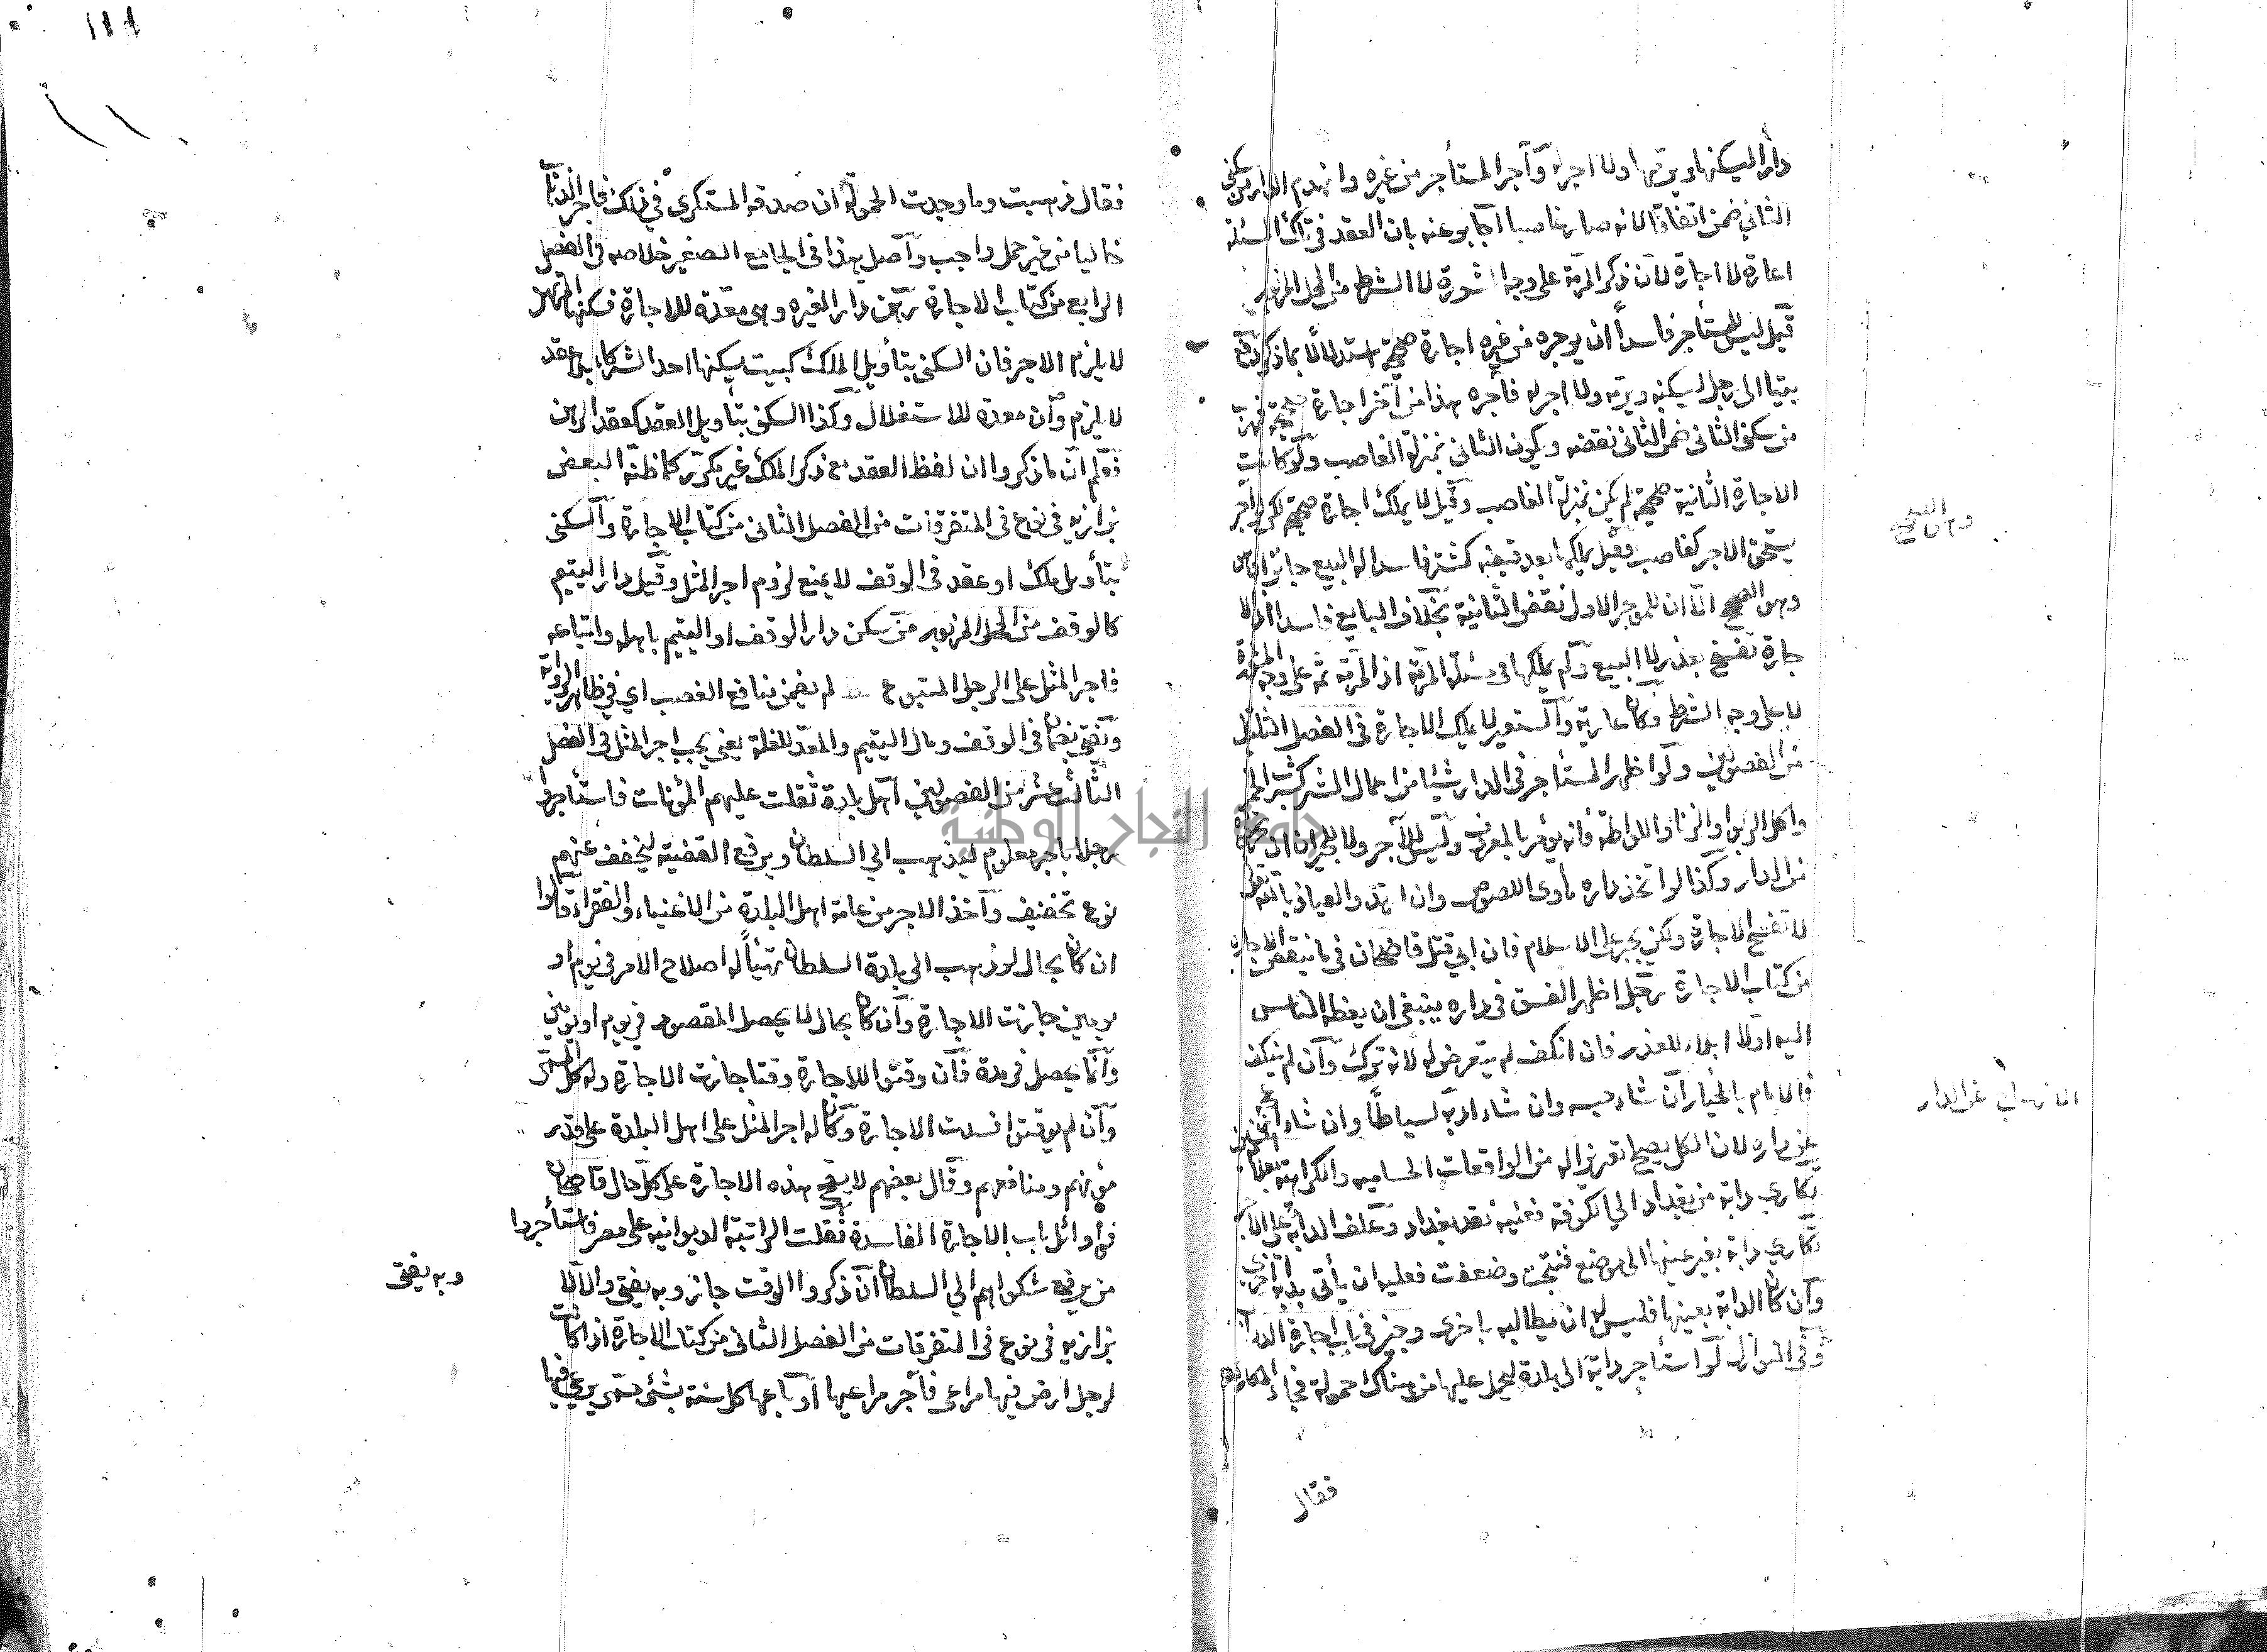 دارا ليسكنها ويرمها ولا اجر له وآجر المستأجر من غيره وانهدم الدار من سكنى
الثاني ضمن اتفاقا لانه صار غاصبا اجابوعنه بان العقد في تلك المسئلة
اعارة لا اجارة لان ذكر المرمة على وجه المشورة لا الشرط من المحل المزبور
قيل ليس للمستأجر فاسداً ان يوجره من غيره اجارة صحيحة استدلالًا بما ذكر دفع
بيتا الى رجل ليسكنه ويرمه ولا اجر له فآجره هذا من آخر اجارة صحيحة فخرب
من سكنى الثاني ضمن الثاني نقضه ويكون الثاني بمنزلة الغاصب ولو كانت
الاجارة الثانية صحيحة لم يكن بمنزلة الغاصب وقيل لا يملك اجارة صحيحة لكن لو آجر
يستحق الاجر كغاصب وقيل يملكها بعد قبضه كمشتر فاسدا له البيع جائزا
وهو الصحيح الا ان للموجر الاول نقض الثانية بخلاف البايع فاسدا اذ الا
جارة تفسخ بعذر لا البيع ولم يملكها في مسئلة المرمة اذ المرمة ثمه على وجه المشورة
لا على وجه الشرط فكان عارية والمستعير لا يملك الاجارة في الفصل الثلثون
من الفصولين ولو اظهر المستأجر في الدار شيئا من اعمال الشر كشرب الخمر
واكل الربوا والزنا واللواطة فانه يؤمر بالمعروف وليس للآجر ولا للجيران ان يخرجوه
من الدار وكذا لو اتخذ داره مأوى اللصوص وان ارتد والعياذ بالله تعالى
لا تفسخ الاجارة ولكن يجبر على الاسلام فان ابى قتل قاضيخان في ما ينقض الاجارة
من كتاب الاجارة رجل اظهر الفسق في داره ينبغي ان يعظه الناس
اليه اولا ابلاء للعذر فان انكف لم يتعرض له لانه ترك وان لم ينكف
فالامام بالخيار ان شاء حبسه وان شاء ادبه لسياطًا وان شاء ازعجه
عن داره لان الكل يصلح تعزيرا له من الواقعات الحساميه والكراهة
تكارى دابة من بغداد الى الكوفة فعليه نقد بغداد وعلف الدابة على الآجر
تكارى دابة بغير عينها الى موضع فنتجت وضعفت فعليه ان يأتى بدابة اخرى
وان كان الدابة بعينها فليس له ان يطالبه باخرى وجيز في باب اجارة الدواب
وفى النوازل لو استأجر دابة الى بلدة ليحمل عليها من هناك حمولة فجاء المكاري
فقال
وهو الصحيح
الازعاج عن الدار
١١١
فقال ذهبت وما وجدت الحمولة ان صدقه المستكري في ذلك فاجر الذهاب
خاليا من غير حمل واجب واصل هذا فى الجامع الصغير خلاصه فى الفصل
الرابع من كتاب الاجارة رهن دار الغيره وهى معدة للاجارة فسكنها المرتهن
لا يلزم الاجر فان السكنى بتأويل الملك كبيت يسكنها احد الشركاء بلا عقد
لا يلزم وان معدة للاستغلال وكذا السكنى بتأويل العقد كعقد الرهن
فعلم ان ما ذكروا ان لفظ العقد مع ذكر الملك غير مكرر كما ظنه البعض
بزازيه في نوع في المتفرقات من الفصل الثاني من كتاب الاجارة والسكنى
بتأويل ملك او عقد في الوقف لا يمنع لزوم اجر المثل وقيل دار اليتيم
كالوقف من المحل المزبور من سكن دار الوقف او اليتيم باهله واتباعه
فاجر المثل على الرجل المتبوع لم يضمن منافع الغصب اى في ظاهر الرواية
ويفتى بضمان في الوقف ومال اليتيم والمعد للغلة يعنى يجب اجر المثل في الفصل
الثالث عشر من الفصولين اهل بلدة ثقلت عليهم المؤنات فاستأجروا
رجلا باجر معلوم ليذهب الى السلطان ويرفع القضية ليخفف عنهم
نوع تخفيف وآخذ الاجر من عامة اهل البلدة من الاغنياء والفقراء قالوا
ان كان بحال لو ذهب الى بلدة السلطان تهيأ له اصلاح الامر في يوم او
يومين جازت الاجارة وان كان بحال لا يحصل المقصود في يوم او يومين
وانما يحصل في مدة فان وقتوا للاجارة وقتا جازت الاجارة وله كل المسمى
وان لم يوقتوا فسدت الاجارة وكان له اجر المثل على اهل البلدة على قدر
مؤنهم ومنافعهم وقال بعضهم لا يصح هذه الاجارة على كل حال قاضيخان
في اوائل باب الاجارة الفاسدة ثقلت الراتبة الديوانية على مصر فاستأجروا
من يرفع شكواهم الى السلطان ان ذكروا الوقت جاز وبه يفتى والا لا
بزازيه في نوع فى المتفرقات من الفصل الثانى من كتاب الاجارة اذا كانت
لرجل ارض فيها مراعى فآجر مراعيها او باعها كل سنة بشئ مسمى يرعى فيها
وبه يفتى
جامعة النجاح الوطنية